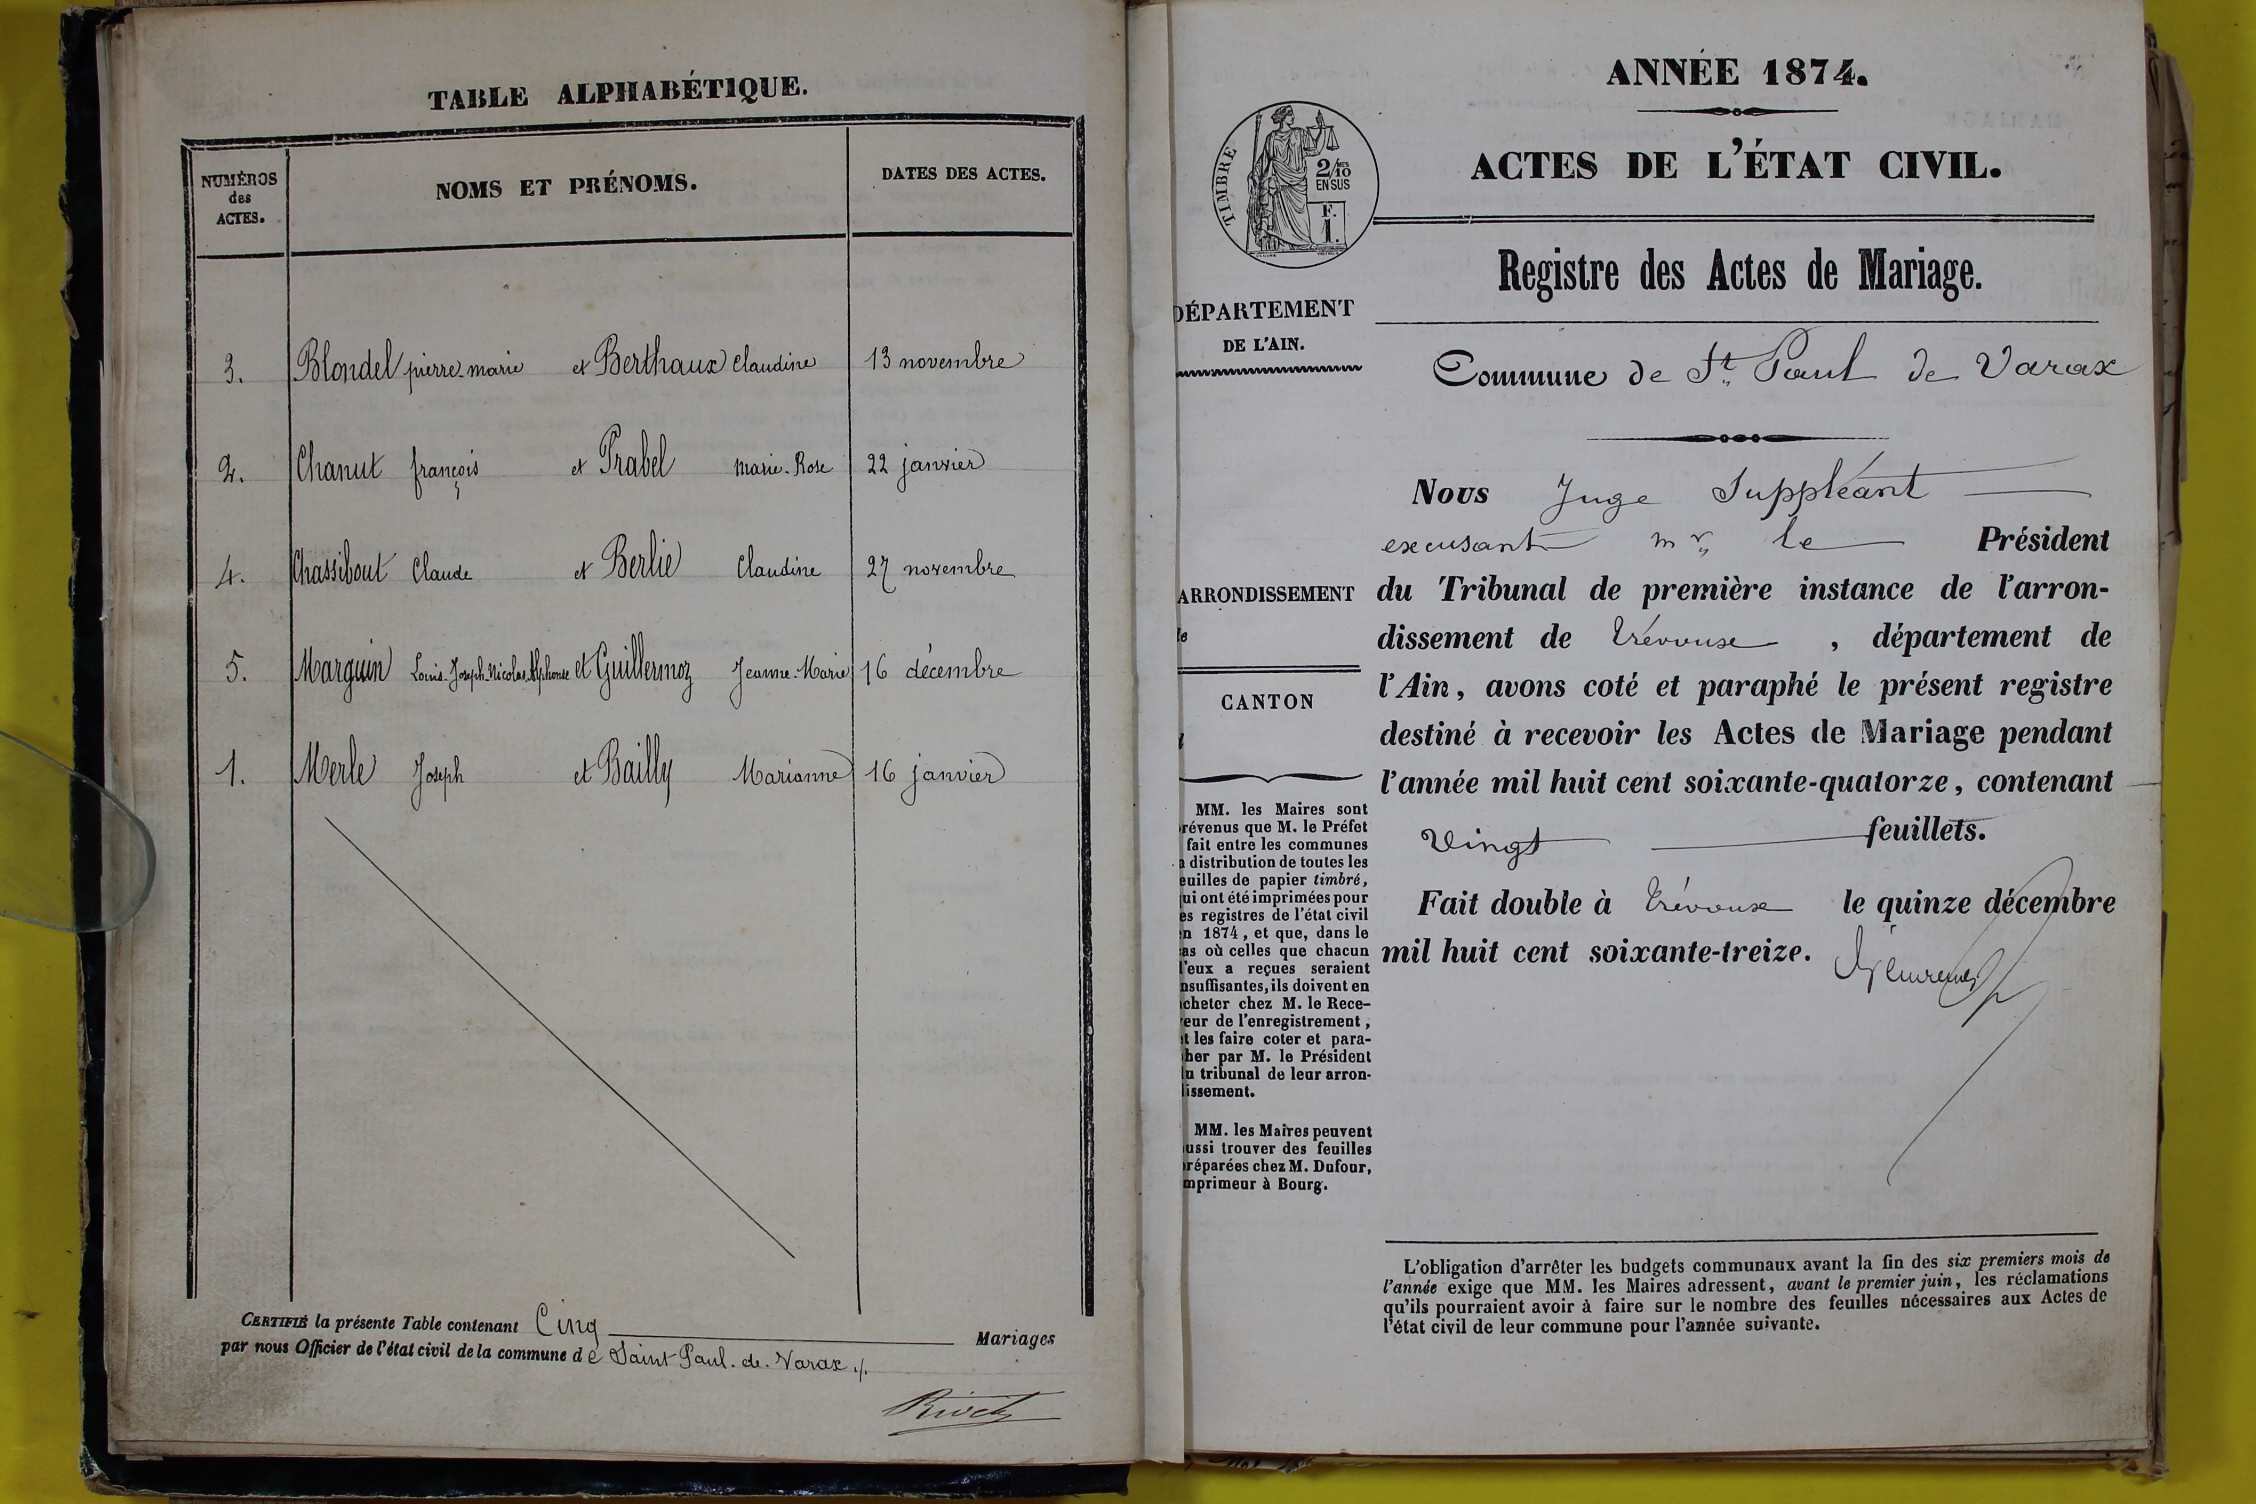 TABLE ALPHABÉTIQUE.
NUMÉROS
des
ACTES.
NOMS ET PRÉNOMS.
DATES DES ACTES.
3. Blondel pierre-marie et Berthaux Claudine 13 novembre
2. Chanut françois et Prabel Marie-Rose 22 janvier
4. Chassibout Claude et Berlie Claudine 27 novembre
5. Marguin Louis-Joseph-Nicolas-Alphonse et Guillermoz Jeanne-Marie 16 décembre
1. Merle Joseph et Bailly Marianne 16 janvier
CERTIFIÉ la présente Table contenant Cinq Mariages
par nous Officier de l'état civil de la commune de Saint Paul-de-Varax
ANNÉE 1874.
ACTES DE L'ÉTAT CIVIL.
TIMBRE
2/10 MES
EN SUS
F.
1.
Registre des Actes de Mariage.
DÉPARTEMENT
DE L'AIN.
Commune de St Paul de Varax
Nous Juge Suppléant
excusant Mr le Président
ARRONDISSEMENT
du Tribunal de première instance de l'arron-
dissement de Trévoux, département de
l'Ain, avons coté et paraphé le présent registre
CANTON
destiné à recevoir les Actes de Mariage pendant
l'année mil huit cent soixante-quatorze, contenant
Vingt feuillets.
Fait double à Trévoux le quinze décembre
mil huit cent soixante-treize.
MM. les Maires sont
révenus que M. le Préfet
fait entre les communes
a distribution de toutes les
euilles de papier timbré,
ui ont été imprimées pour
es registres de l'état civil
n 1874, et que, dans le
as où celles que chacun
'eux a reçues seraient
nsuffisantes, ils doivent en
cheter chez M. le Rece-
eur de l'enregistrement,
t les faire coter et para-
her par M. le Président
u tribunal de leur arron-
issement.
MM. les Maires peuvent
ussi trouver des feuilles
réparées chez M. Dufour,
mprimeur à Bourg.
L'obligation d'arrêter les budgets communaux avant la fin des six premiers mois de
l'année exige que MM. les Maires adressent, avant le premier juin, les réclamations
qu'ils pourraient avoir à faire sur le nombre des feuilles nécessaires aux Actes de
l'état civil de leur commune pour l'année suivante.